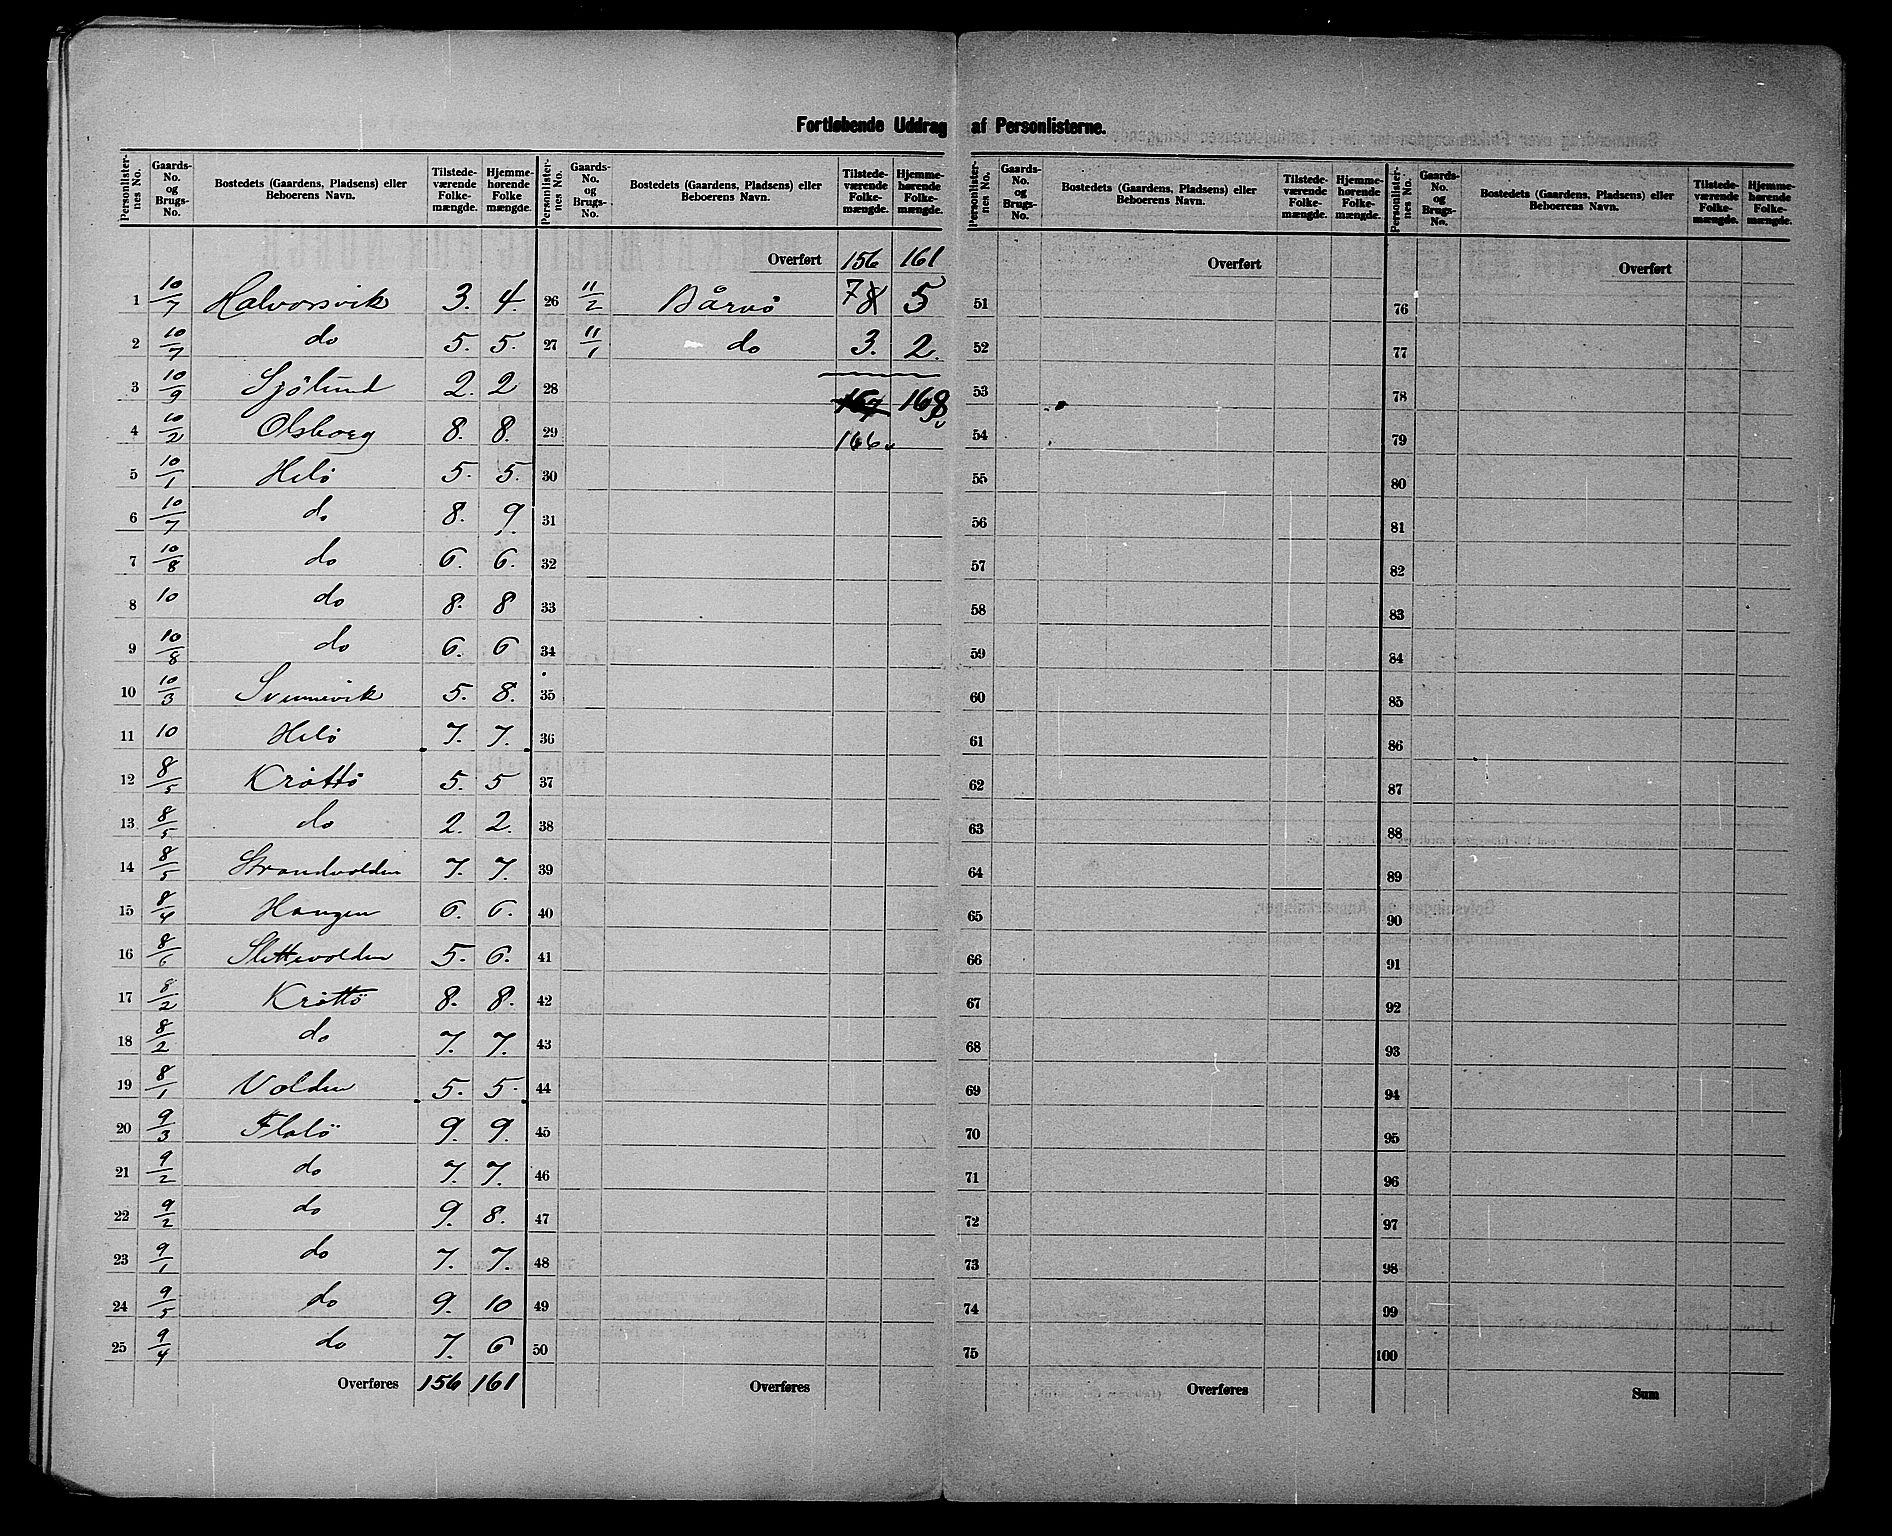 Fortløbende Uddrag af Personlisterne.
Personlister-nes No. Gaards-No. og Brugs-No. Bostedets (Gaardens, Pladsens) eller Beboerens Navn. Tilstede-værende Folke-mængde. Hjemme-hørende Folke mængde.
Personlister-nes No. Gaards-No. og Brugs-No. Bostedets (Gaardens, Pladsens) eller Beboerens Navn. Tilstede-værende Folke-mængde. Hjemme-hørende Folke-mængde.
1 10/7 Halvorsvik 3. 4.
2 10/7 do 5. 5.
3 10/9 Sjölund 2. 2
4 10/2 Olsborg 8. 8.
5 10/1 Helö 5. 5.
6 10/7 do 8. 9.
7 10/8 do 6. 6.
8 10 do 8. 8
9 10/8 do 6. 6
10 10/3 Svennevik 5. 8.
11 10 Helö 7. 7.
12 8/5 Kråttö 5. 5
13 8/5 do 2. 2.
14 8/5 Strandvolden 7. 7.
15 8/4 Haugen 6. 6.
16 8/6 Slettevolden 5. 6.
17 8/2 Kråttö 8. 8.
18 8/2 do 7. 7.
19 8/1 Volden 5. 5.
20 9/3 Flatö 9. 9.
21 9/2 do 7. 7.
22 9/2 do 9. 8.
23 9/1 do 7. 7.
24 9/5 do 9. 10
25 9/4 do 7. 6
Overføres 156 161
Overført 156 161
26 11/2 Bårvö 7 8 5
27 11/1 do 3. 2.
28 167 168
29 166
30
31
32
33
34
35
36
37
38
39
40
41
42
43
44
45
46
47
48
49
50
Overføres
Personlister-nes No. Gaards-No. og Brugs-No. Bostedets (Gaardens, Pladsens) eller Beboerens Navn. Tilstede-værende Folke-mængde. Hjemme-hørende Folke-mængde.
Overført
51
52
53
54
55
56
57
58
59
60
61
62
63
64
65
66
67
68
69
70
71
72
73
74
75
Overføres
Personlister-nes No. Gaards-No. og Brugs-No. Bostedets (Gaardens, Pladsens) eller Beboerens Navn. Tilstede-værende Folke-mængde. Hjemme-hørende Folke-mængde.
Overført
76
77
78
79
80
81
82
83
84
85
86
87
88
89
90
91
92
93
94
95
96
97
98
99
100
Sum